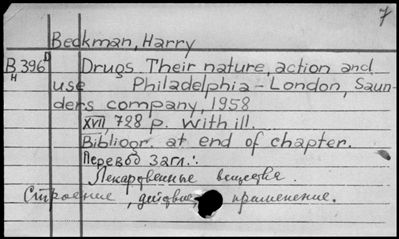 7
Beckman, Harry
B 396 D Drugs. Their nature, action and
H use Philadelphia - London, Saun-
ders company, 1958
XVII, 728 p. with ill.
Bibliogr. at end of chapter.
Перевод загл.:
Лекарственные вещества.
Строение, действие, применение.